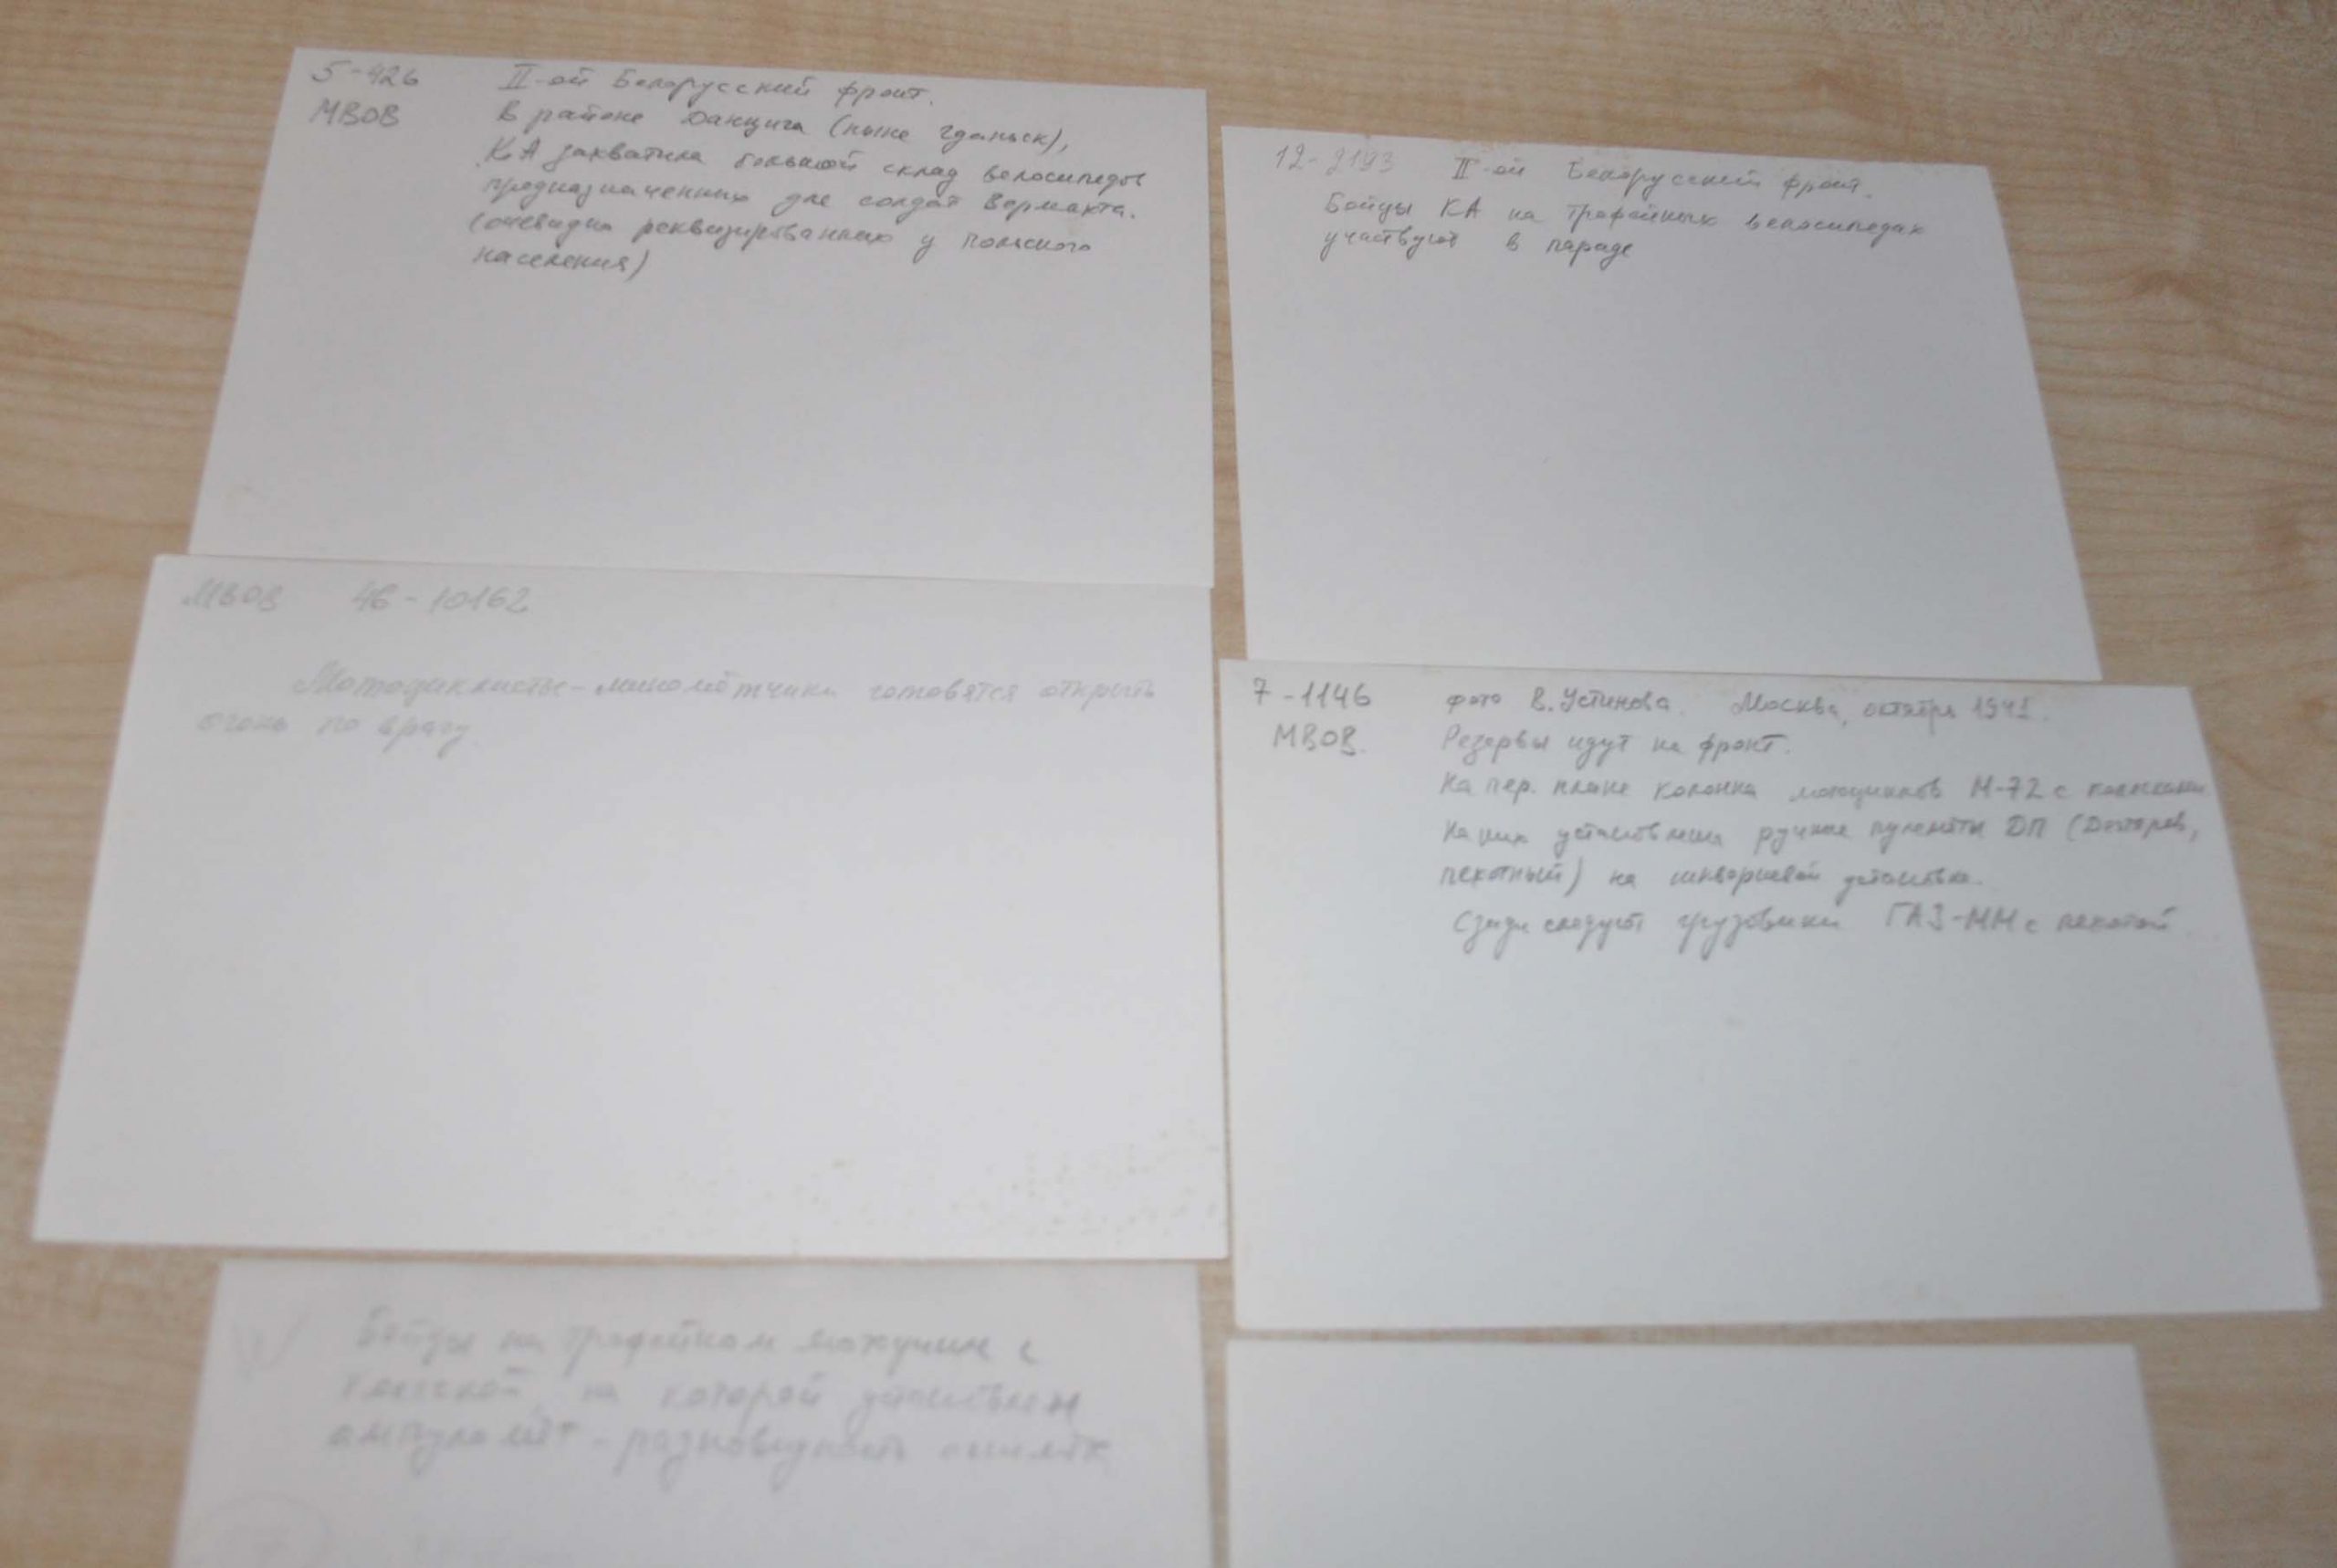 5-426 II-ой Белорусский фронт.
МВОВ В районе Данцига (ныне Гданьск),
КА захватила большой склад велосипедов
предназначенных для солдат Вермахта.
(очевидно реквизированных у польского
населения)
12-2193 II-ой Белорусский фронт.
Бойцы КА на трофейных велосипедах
участвуют в параде
МВОВ 46-10162
Мотоциклисты-миномётчики готовятся открыть
огонь по врагу.
7-1146 фото В. Устинова. Москва, октябрь 1941.
МВОВ. Резервы идут на фронт.
На пер. плане колонна мотоциклов М-72 с колясками
На них установлены ручные пулемёты ДП (Дегтярев,
пехотный) на шкворневой установке.
Сзади следуют грузовики ГАЗ-ММ с пехотой
Бойцы на трофейном мотоцикле с
коляской, на которой установлен
ампуломёт - разновидность